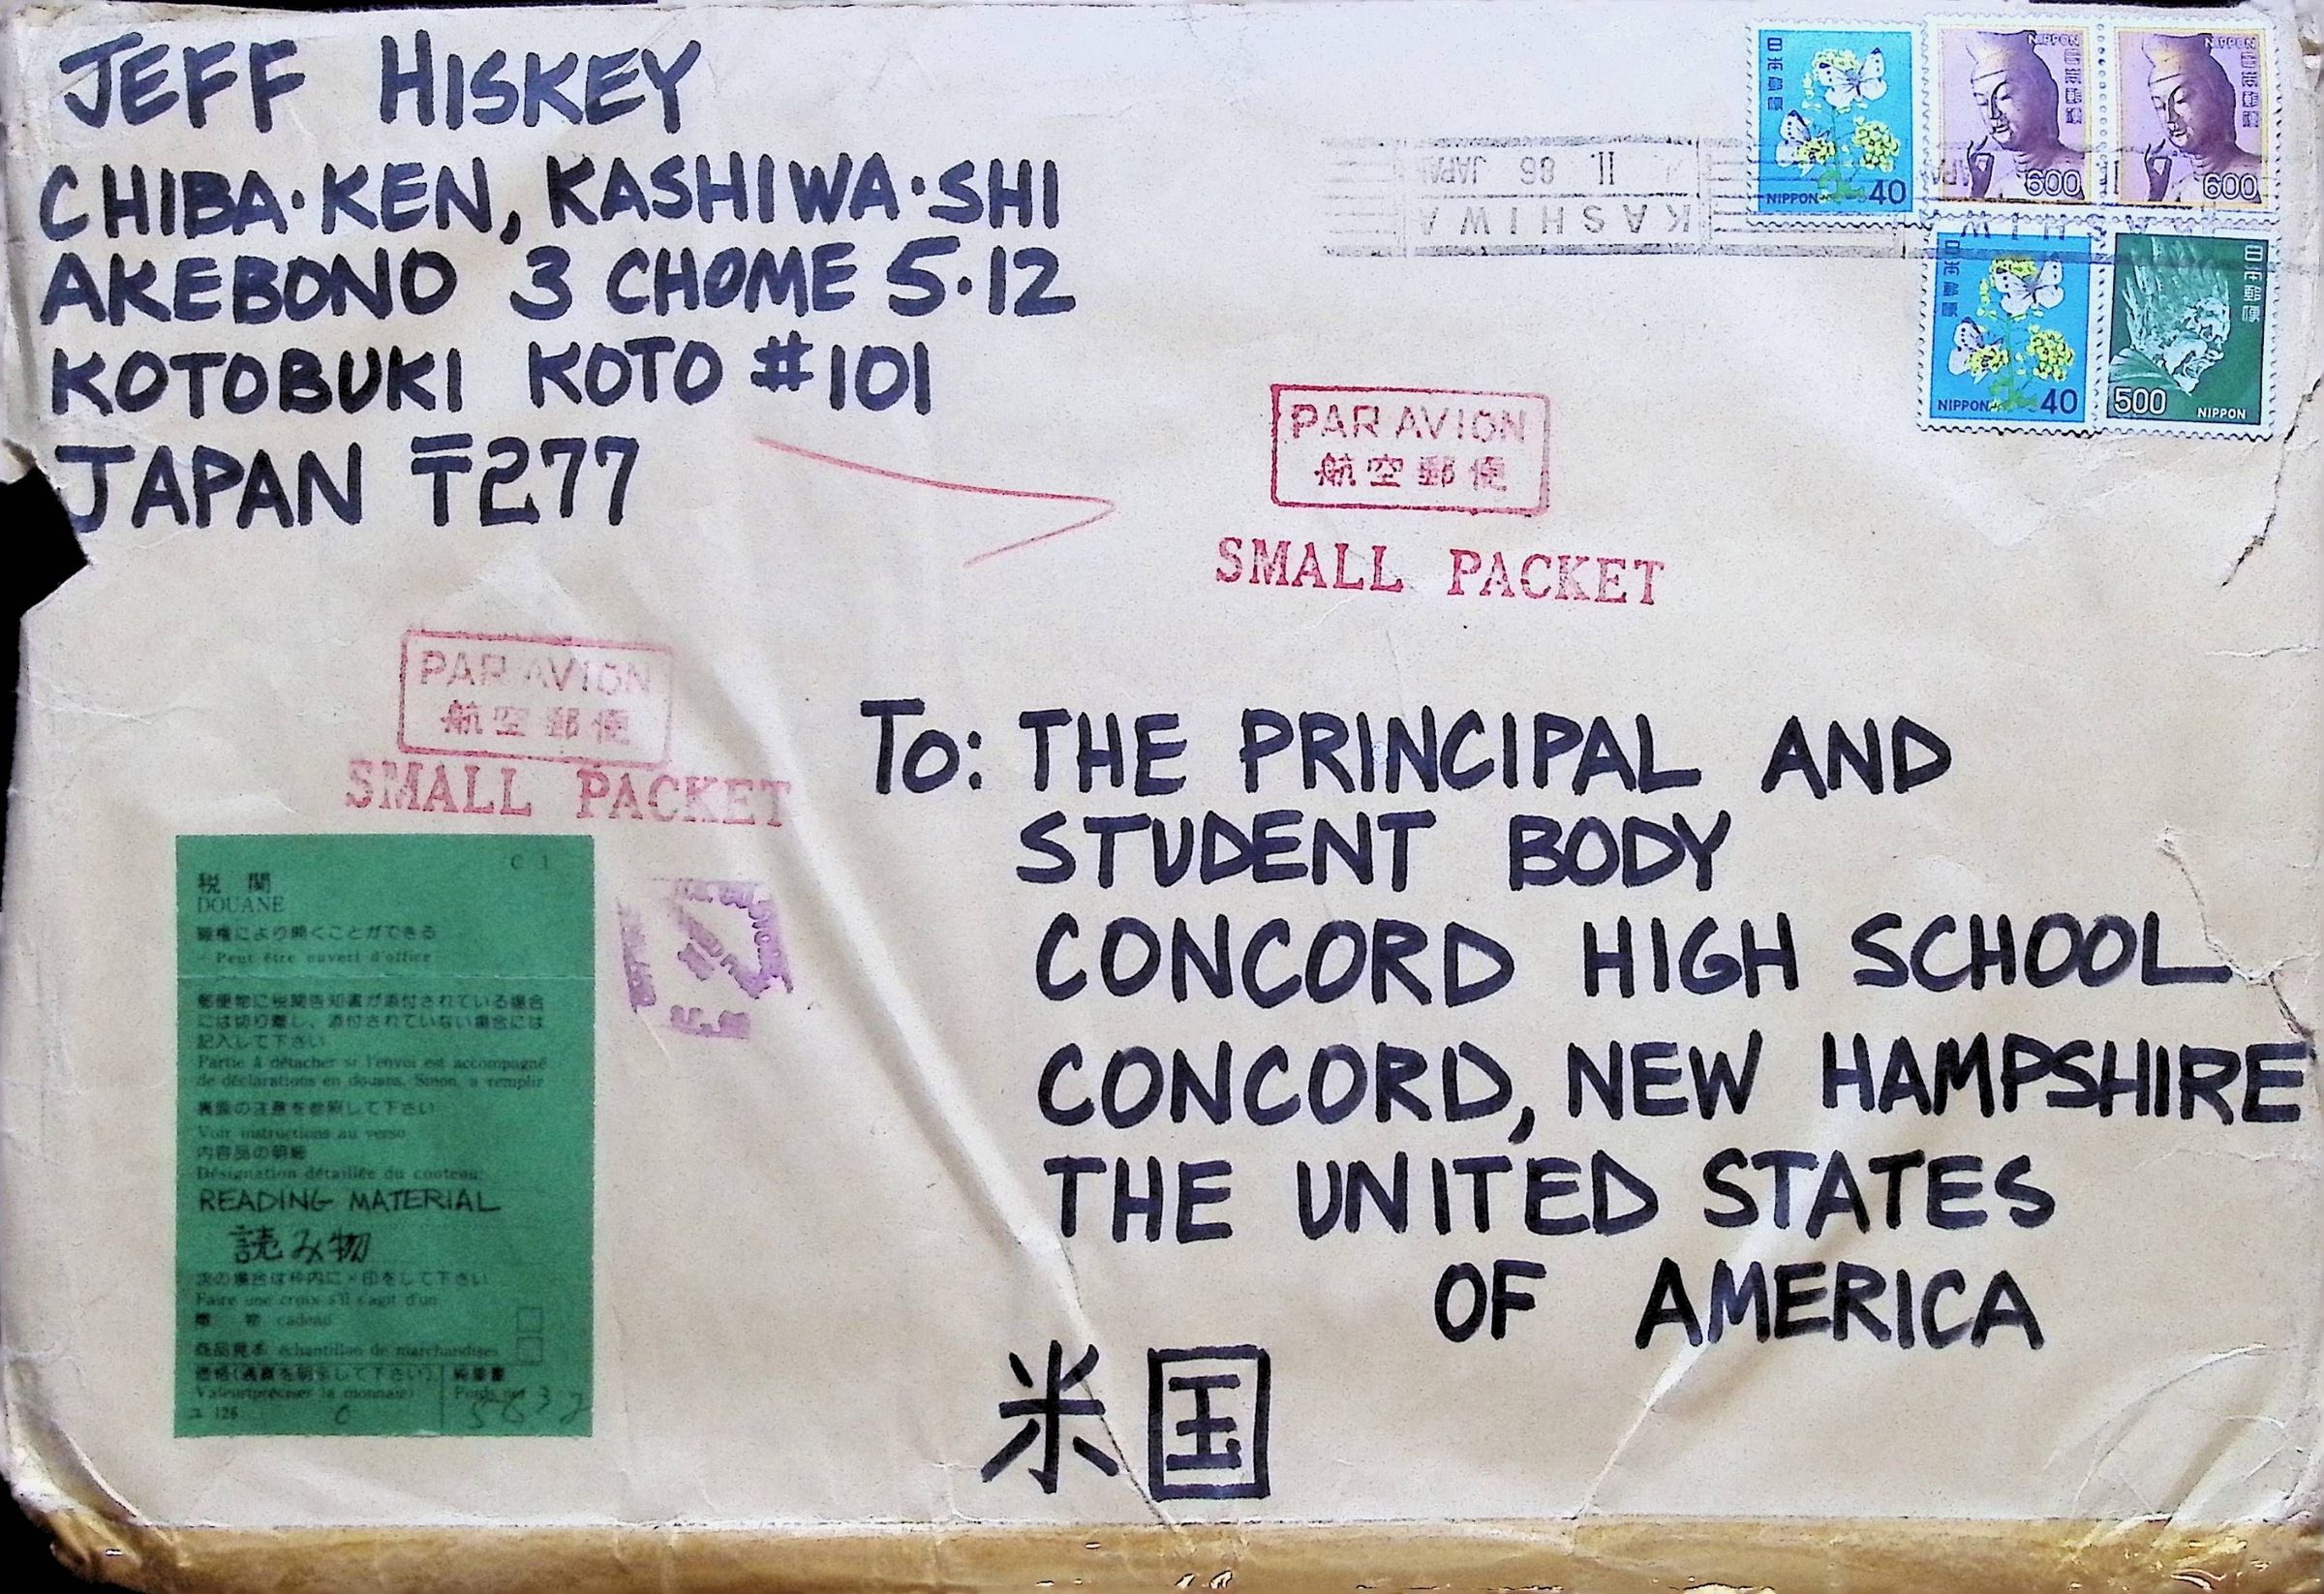 JEFF HISKEY
CHIBA·KEN, KASHIWA·SHI
AKEBONO 3 CHOME 5·12
KOTOBUKI KOTO #101
JAPAN 〒277
日本郵便
NIPPON 40
NIPPON
日本郵便
600
NIPPON
日本郵便
600
日本郵便
NIPPON 40
日本郵便
500 NIPPON
KASHIWA
II. 86 JAPAN
PAR AVION
航空郵便
SMALL PACKET
PAR AVION
航空郵便
SMALL PACKET
To: THE PRINCIPAL AND
STUDENT BODY
CONCORD HIGH SCHOOL
CONCORD, NEW HAMPSHIRE
THE UNITED STATES
OF AMERICA
米国
C 1
税 関
DOUANE
職権により開くことができる
Peut être ouvert d'office
郵便物に税関告知書が添付されている場合
には切り離し、添付されていない場合には
記入して下さい
Partie à détacher si l'envoi est accompagné
de déclarations en douane. Sinon, a remplir
裏面の注意を参照して下さい
Voir instructions au verso
内容品の明細
Désignation détaillée du contenu:
READING MATERIAL
読み物
次の場合は枠内に×印をして下さい
Faire une croix s'il s'agit d'un
贈 物 cadeau
商品見本 échantillon de marchandises
価格(通貨を明示して下さい)
純重量
Valeur(préciser la monnaie)
Poids net
ユ 128
0